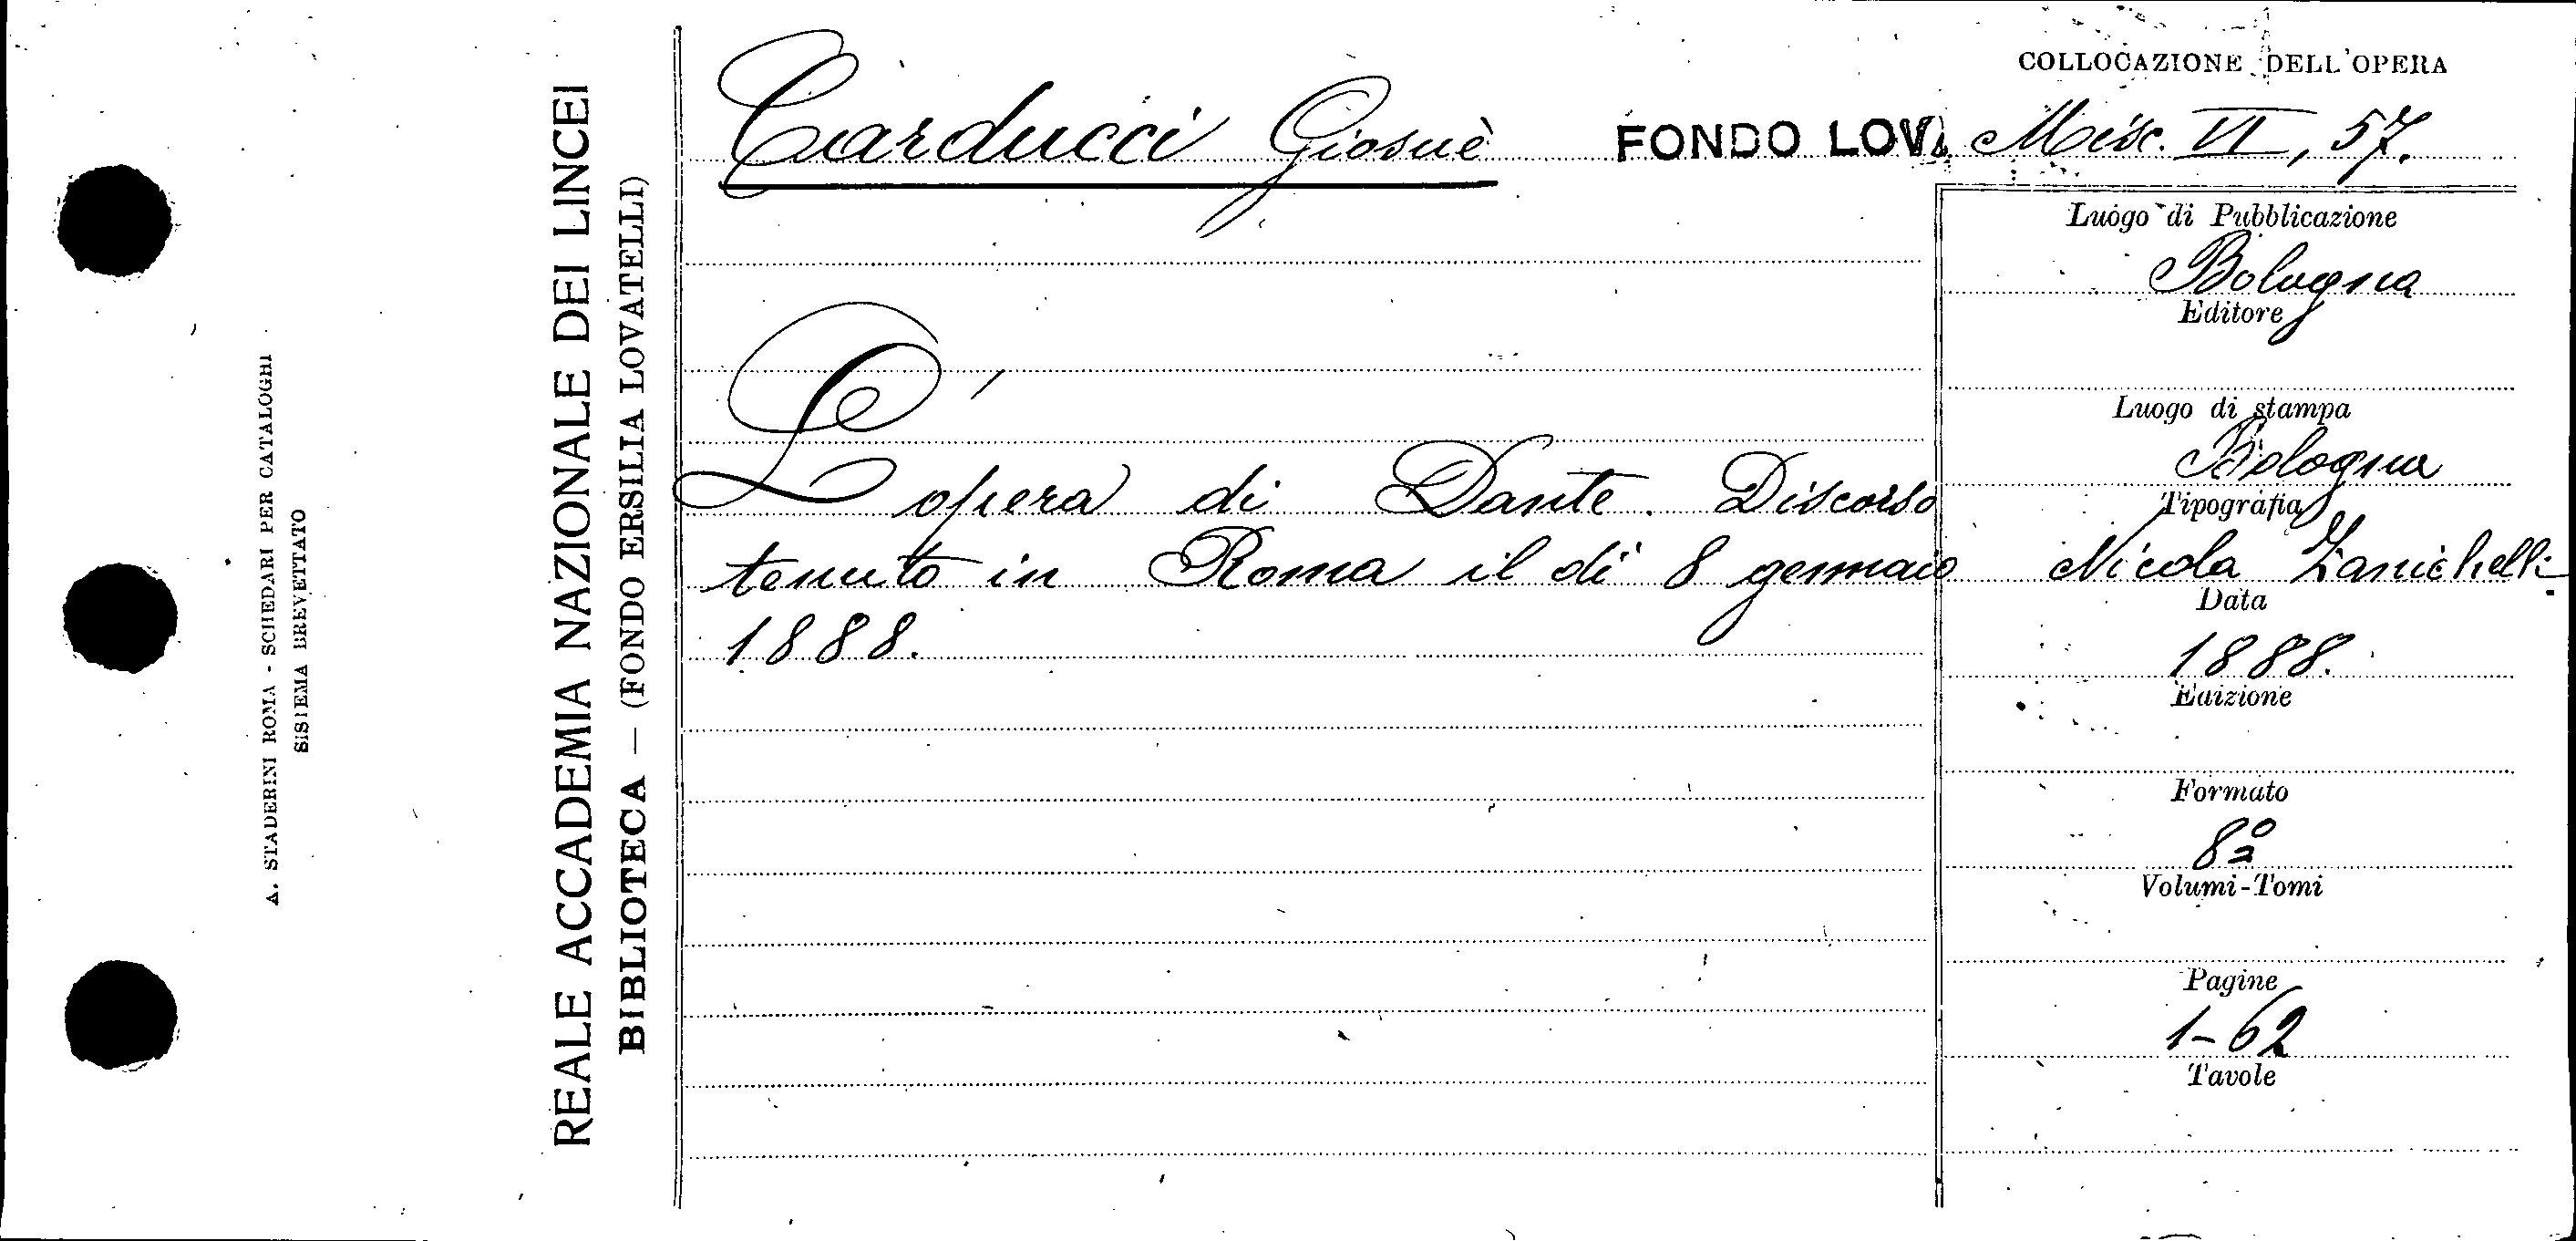 A. STADERINI ROMA - SCHEDARI PER CATALOGHI
SISTEMA BREVETTATO
REALE ACCADEMIA NAZIONALE DEI LINCEI
BIBLIOTECA — (FONDO ERSILIA LOVATELLI)
COLLOCAZIONE DELL'OPERA
Carducci Giosuè FONDO LOV. Misc. VI, 57.
L'opera di Dante. Discorso
tenuto in Roma il dì 8 gennaio
1888.
Luogo di Pubblicazione
Bologna
Editore
Luogo di stampa
Bologna
Tipografia
Nicola Zanichelli
Data
1888.
Edizione
Formato
8º
Volumi-Tomi
Pagine
1-62
Tavole